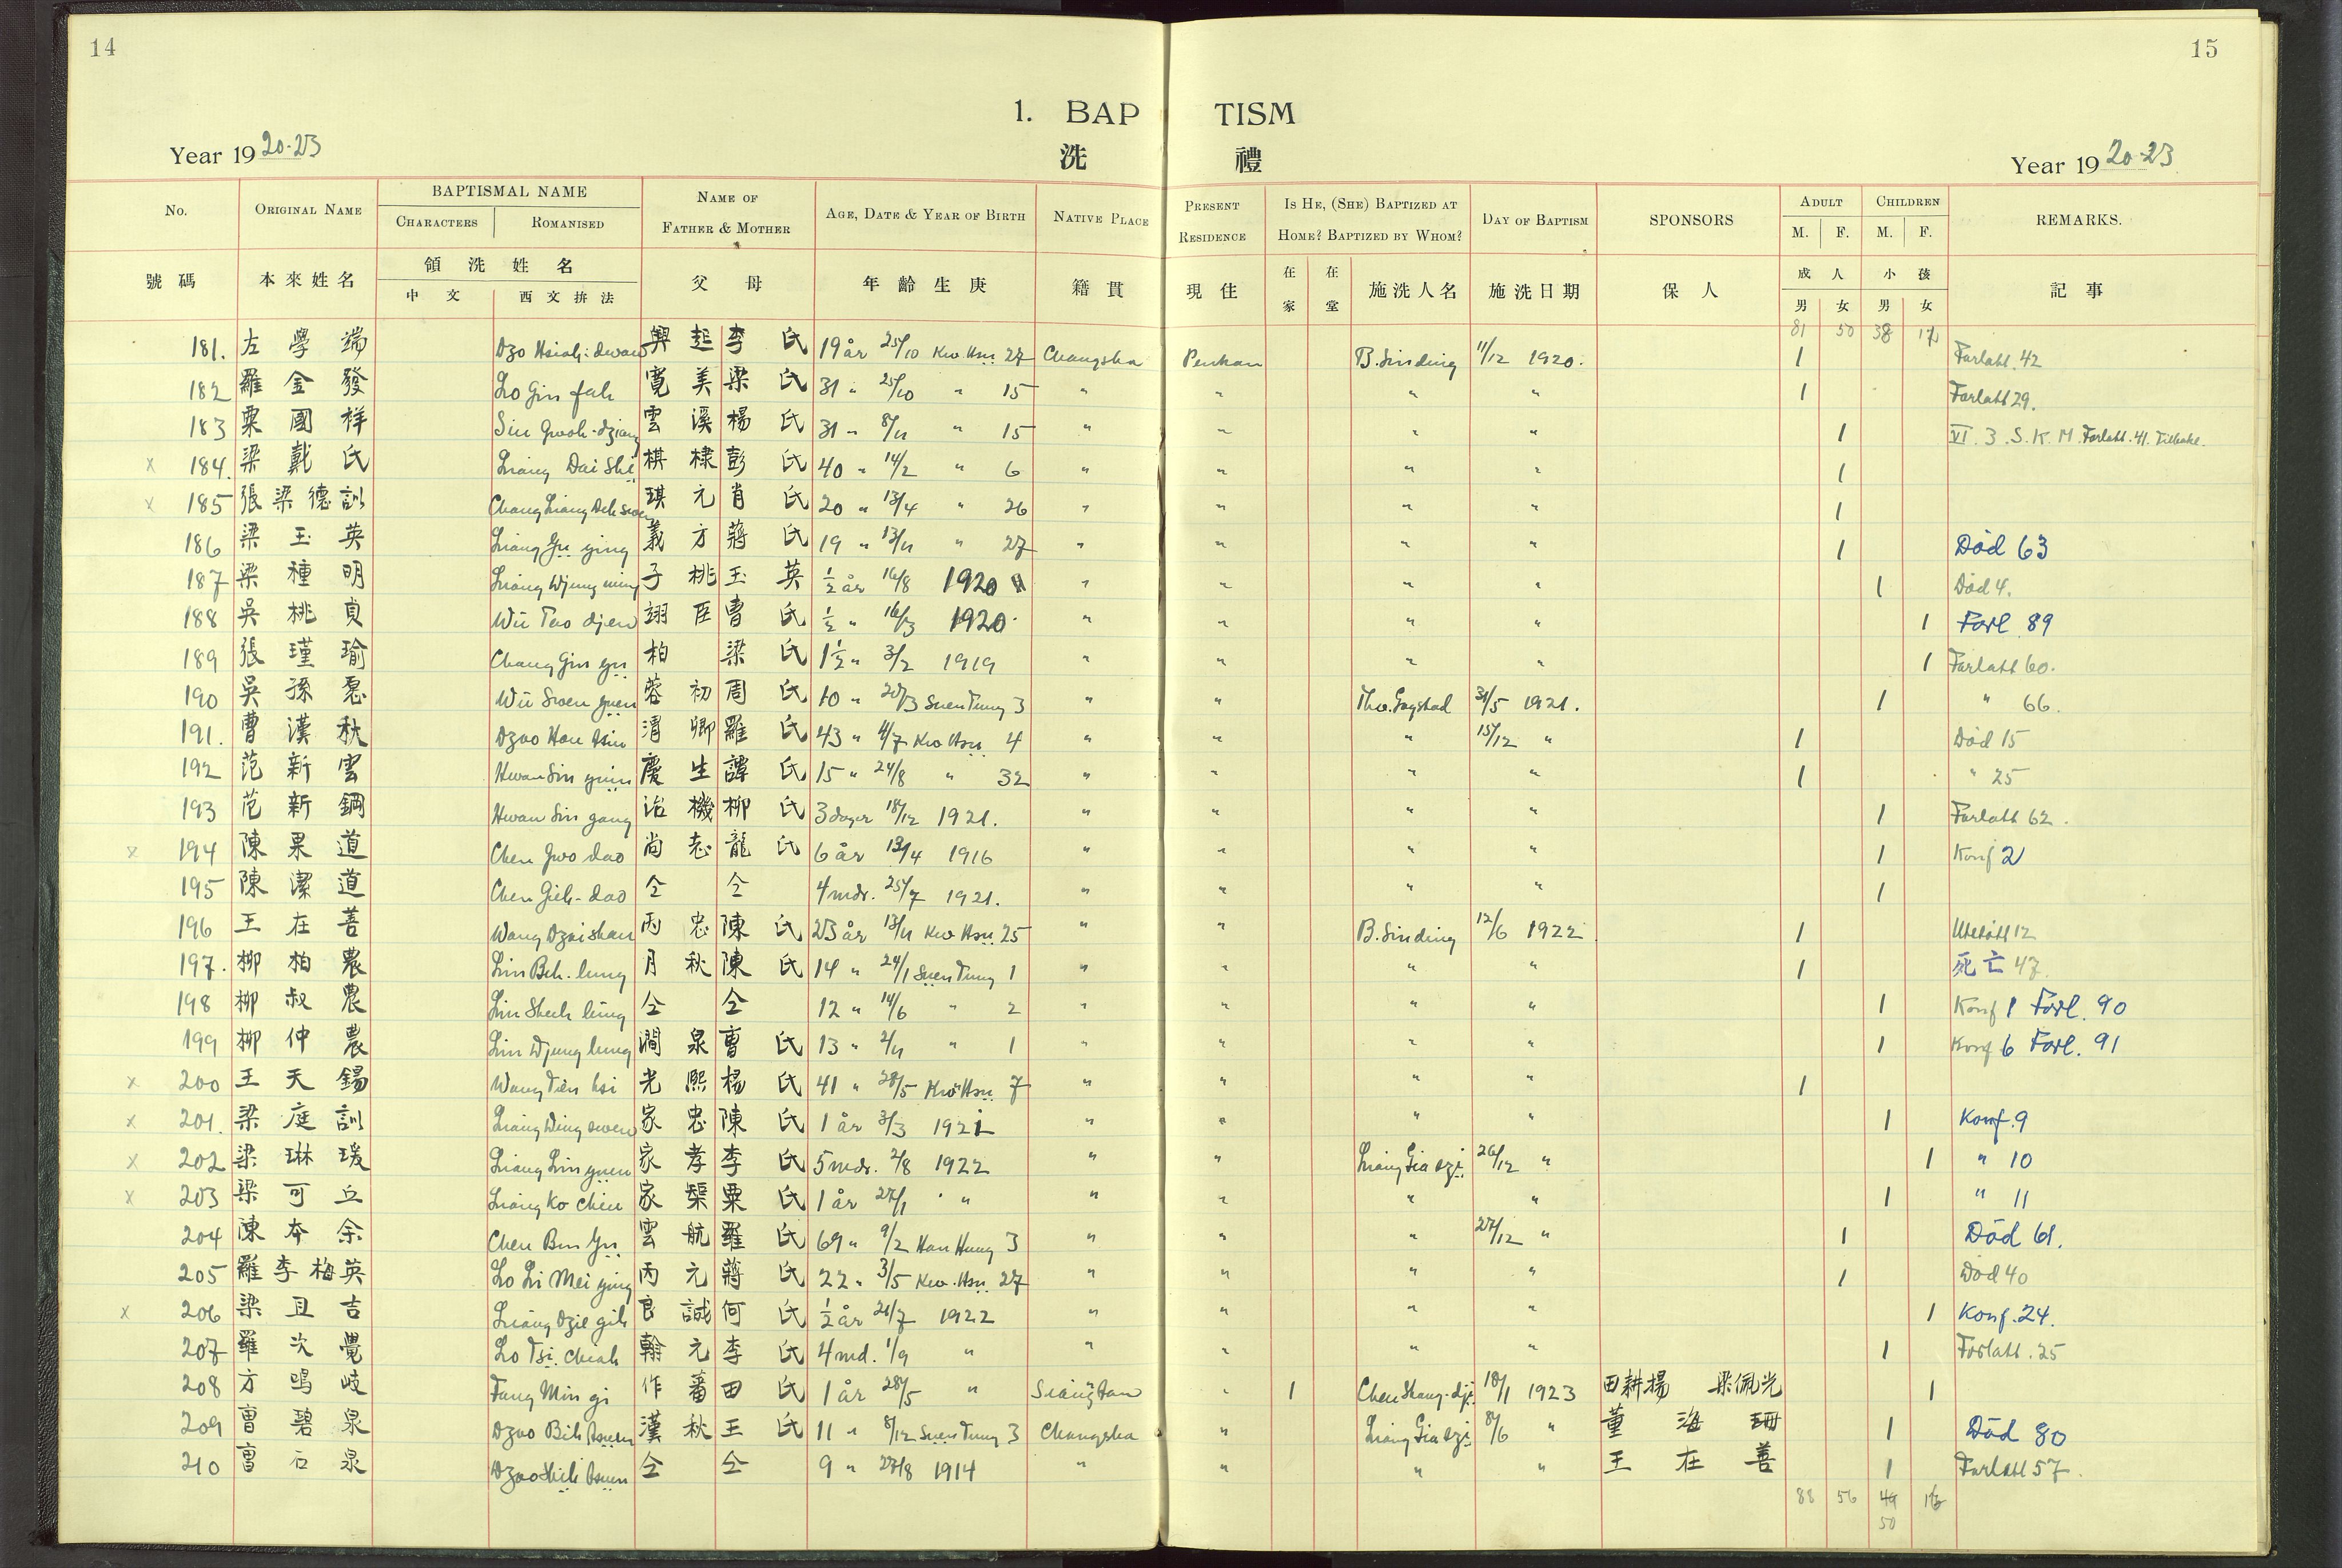 14
15
1. BAPTISM
洗 禮
Year 1920-23
Year 1920-23
No. ORIGINAL NAME BAPTISMAL NAME CHARACTERS ROMANISED NAME OF FATHER & MOTHER AGE, DATE & YEAR OF BIRTH NATIVE PLACE PRESENT RESIDENCE IS HE, (SHE) BAPTIZED AT HOME? BAPTIZED BY WHOM? DAY OF BAPTISM SPONSORS ADULT M. F. CHILDREN M. F. REMARKS.
號碼 本來姓名 領洗姓名 中文 西文拚法 父母 年齡生庚 籍貫 現住 在家 在堂 施洗人名 施洗日期 保人 成人 男 女 小孩 男 女 記事
81 50 38 17
181. 左學端 Dzo Hsioh-dwan 興起 李氏 19 år 25/10 Kwo Hsu 27 Changsha Penhan B. Sinding 11/12 1920. 1 Forlatt. 42
182 羅金發 Lo Gin fah 寬美 梁氏 31 " 25/10 " 15 " " " " 1 Forlatt 29.
183 粟國祥 Siu Gwoh-dziang 雲溪 楊氏 31 " 8/11 " 15 " " " " 1 VI. 3. S. K. M. Forlatt. 41. Tilbake.
x 184. 梁戴氏 Liang Dai Shi 棋棣 彭氏 40 " 14/2 " 6 " " " " 1
x 185 張梁德訓 Chang Liang Deh swen 琪元 肖氏 20 " 13/4 " 26 " " " " 1
186 梁玉英 Liang Yu ying 義方 蔣氏 19 " 13/11 " 27 " " " " 1 Död 63
187 梁種明 Liang Djung ming 子桃 玉英 ½ år 16/8 1920 " " " " 1 Död 4.
188 吳桃貞 Wu Tao djen 翊臣 曹氏 ½ " 16/3 1920 " " " " 1 Forl. 89
189 張瑾瑜 Chang Gin yu 柏 梁氏 1½ " 3/2 1919 " " " " 1 Forlatt 60.
190 吳孫愿 Wu Swen yuen 蓉初 周氏 10 " 20/3 Suen Tung 3 " " Tho. Gogstad 31/5 1921. 1 " 66.
191. 曹漢秋 Dzao Han tsiu 渭卿 羅氏 43 " 4/7 Kwo Hsu 4 " " " 15/12 " 1 Död 15
192 范新雲 Hwan Sin yuin 慶生 譚氏 15 " 24/8 " 32 " " " " 1 " 25
193 范新鋼 Hwan Sin gang 治機 柳氏 3 dager 18/12 1921. " " " " 1 Forlatt 62.
x 194 陳果道 Chen Gwo dao 尚志 龍氏 6 år 13/4 1916 " " " " 1 Konf 2
195 陳潔道 Chen Gieh-dao 仝 仝 4 mdr. 25/7 1921. " " " " 1
196 王在善 Wang Dzai shan 丙忠 陳氏 23 år 13/11 Kwo Hsu 25 " " B. Sinding 12/6 1922 1 Utelatt 12
197. 柳柏農 Liu Beh-lung 月秋 陳氏 14 " 24/1 Suen Tung 1 " " " " 1 死亡 47.
198 柳叔農 Liu Shuh lung 仝 仝 12 " 14/6 " 2 " " " " 1 Konf 1 Forl. 90
199 柳仲農 Liu Djung lung 澗泉 曹氏 13 " 2/11 " 1 " " " " 1 Konf 6 Forl. 91
x 200 王天錫 Wang Tien hsi 光熙 楊氏 41 " 28/5 Kwo Hsu 7 " " " " 1
x 201. 梁庭訓 Liang Ding swen 家忠 陳氏 1 år 3/3 1921 " " " " 1 Konf. 9
x 202 梁琳瑗 Liang Lin yuen 家孝 李氏 5 mdr. 2/8 1922 " " Liang Gia dzi 26/12 " 1 " 10
x 203 梁可丘 Liang Ko chiu 家槊 粟氏 1 år 27/1 " " " " " " 1 " 11
204 陳本余 Chen Bun Yu 雲航 羅氏 69 " 9/2 Han Hung 3 " " " 27/12 " 1 Död 61.
205 羅李梅英 Lo Li Mei ying 丙元 蔣氏 22 " 3/5 Kwo Hsu 27 " " " " 1 Död 40
x 206 梁且吉 Liang Dzie gih 良誠 何氏 ½ år 21/7 1922 " " " " 1 Konf. 24.
207 羅次覺 Lo Tsi chioh 翰元 李氏 4 md. 1/9 " " " " " 1 Forlatt. 25
208 方鳴岐 Fang Min gi 作蕃 田氏 1 år 28/5 " Siangtan " 1 Chen Shang-dji 10/1 1923 田耕揚 梁佩光 1
209 曹碧泉 Dzao Bih tsuen 漢秋 王氏 11 " 8/12 Suen Tung 3 Changsha " Liang Gia dzi 8/6 " 董海珊 1 Död 80
210 曹石泉 Dzao Shih tsuen 仝 仝 9 " 27/8 1914 " " " " 王在善 1 Forlatt 57.
88 56 49 18
50